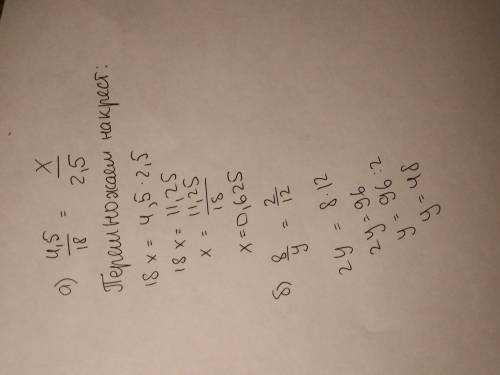 а) 4,5/18 = x/2,5
Перемножаем накрест:
18x = 4,5·2,5
18x = 11,25
x = 11,25/18
x=0,625
б) 8/y = 2/12
2y = 8·12
2y = 96
y = 96:2
y = 48